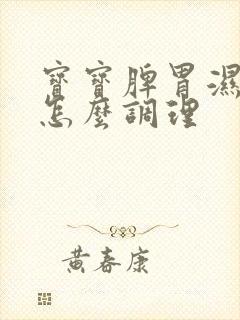 寶寶脾胃濕
怎麼調理
黃春康